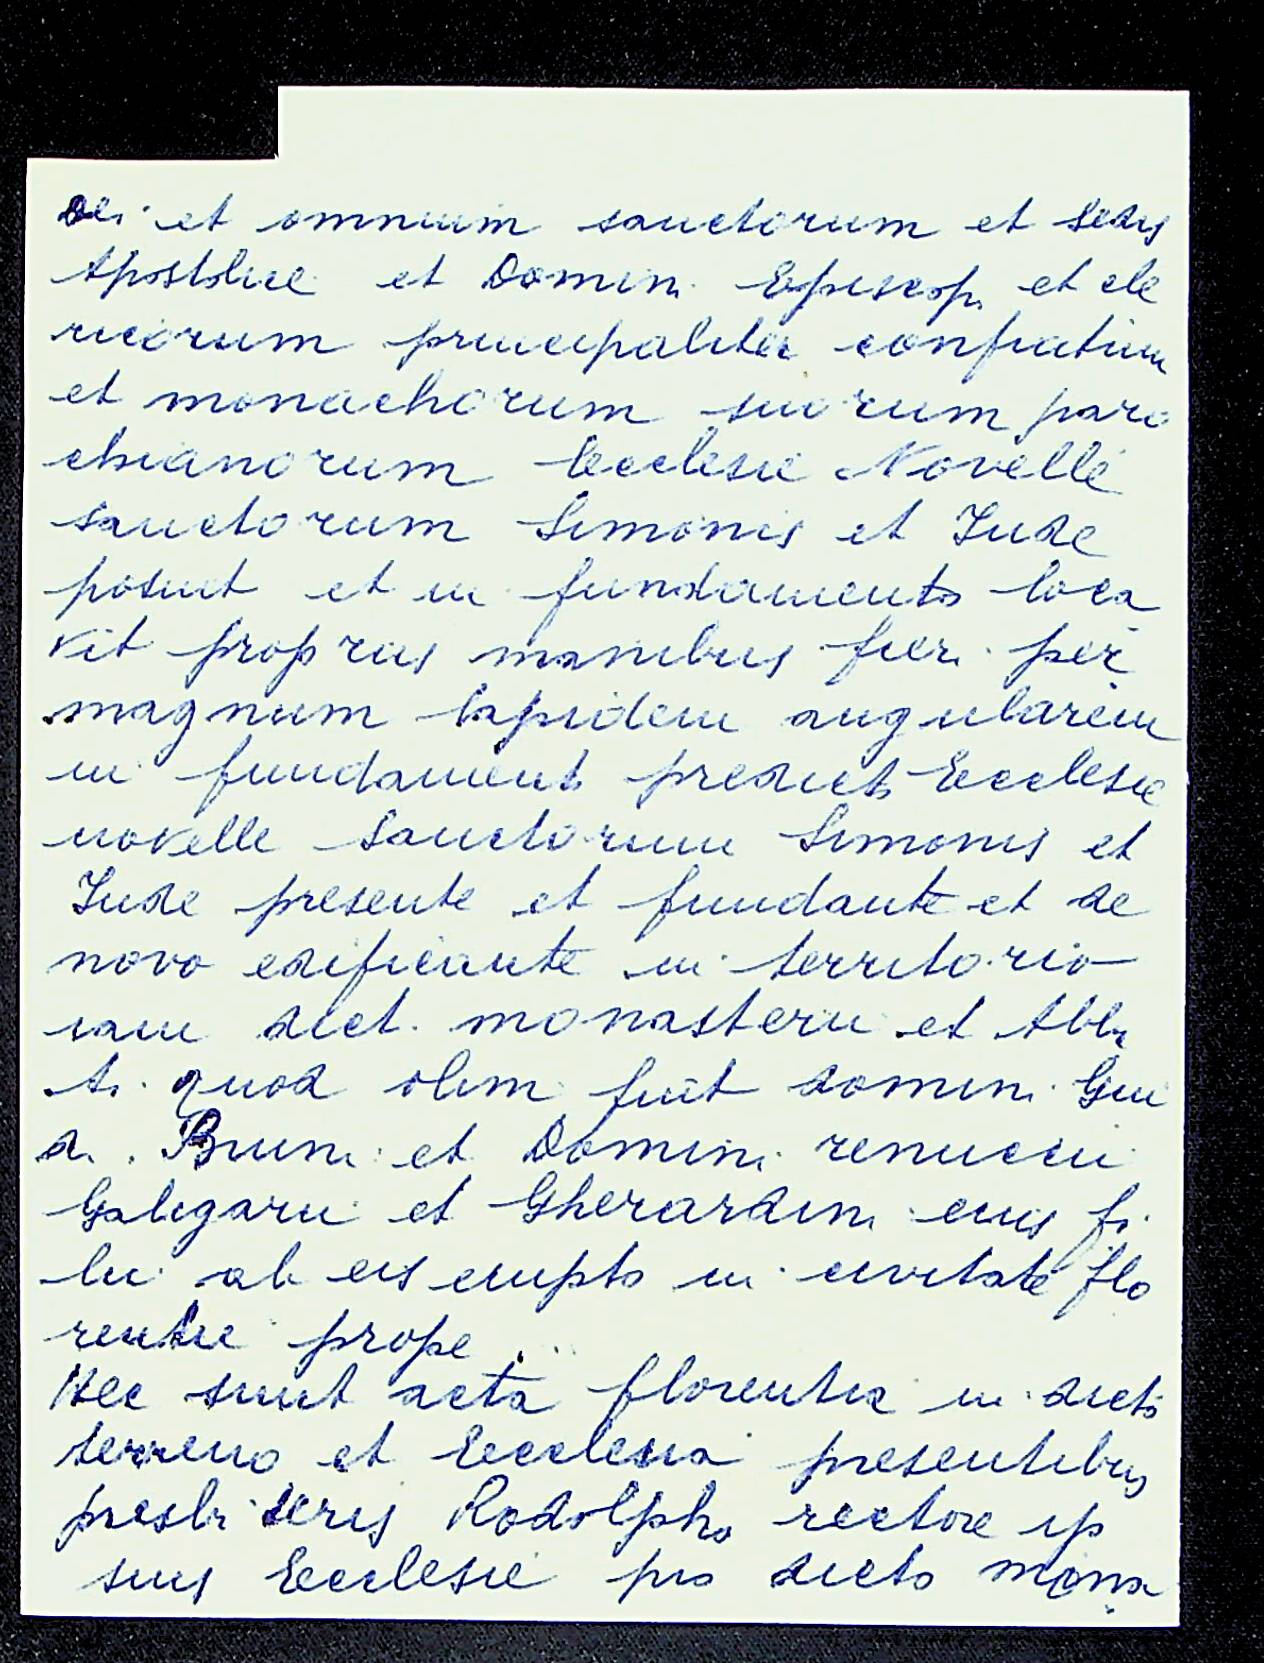 Dei et omnium sanctorum et sedis
Apostolice et Domini Episcopi et cle
ricorum principaliter confratrum
et monachorum suorum paro
chianorum Ecclesie Novelle
sanctorum Simonis et Jude
posuit et in fundamento loca
vit propriis manibus fieri per
magnum lapidem angularem
in fundamento predicte Ecclesie
novelle Sanctorum Simonis et
Jude presente et fundante et de
novo edificante in territorio
iam dict. monasterii et Abba
ti quod olim fuit domini Gui
di Bruni et Domini renuccii
Galigarii et Gherardini eius fi
lii ab eis empto in civitate flo
rentie prope . . .
Hec sunt acta florentie in dicto
terreno et Ecclesia presentibus
presbiteris Rodolpho rectore ip
sius Ecclesie pro dicto mona